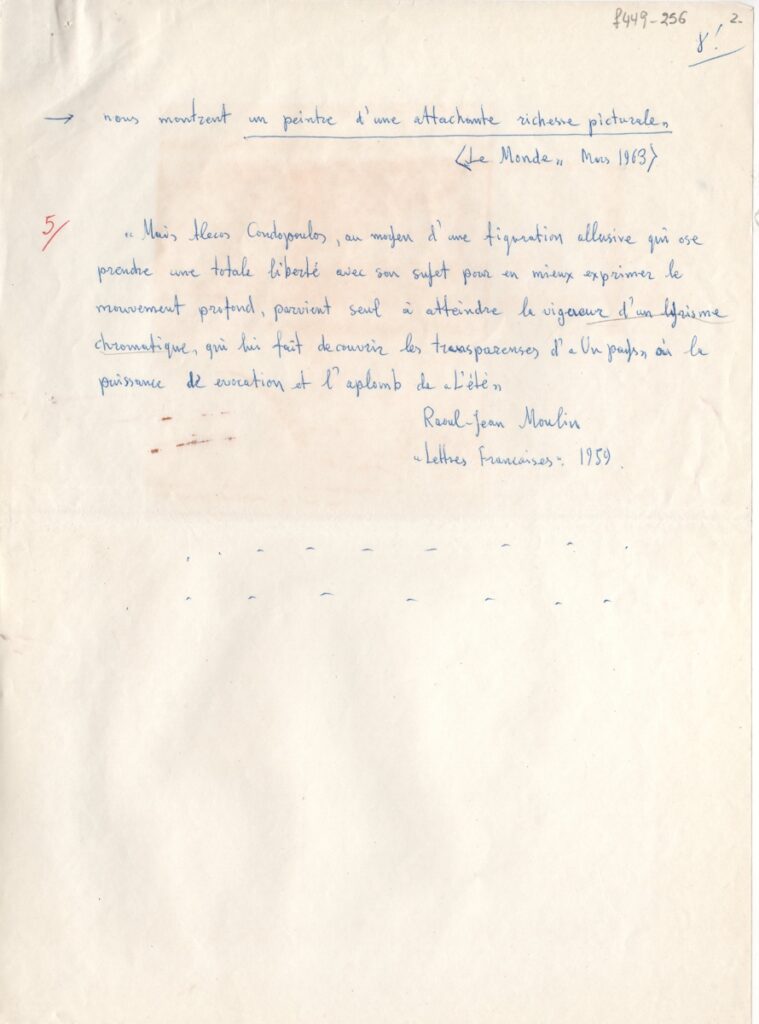 f449-256 2.
8!
→ nous montrent un peintre d'une attachante richesse picturale„
(„Le Monde„ Mars 1963)
5/ „Mais Alecos Condopoulos, au moyen d'une figuration allusive qui ose
prendre une totale liberté avec son sujet pour en mieux exprimer le
mouvement profond, parvient seul à atteindre la vigeueur d'un lyrisme
chromatique, qui lui fait decouvrir les transparenses d'„Un pays„ où la
puissance de evocation et l'aplomb de „L'été„
Raoul-Jean Moulin
„Lettres Francaises". 1959.